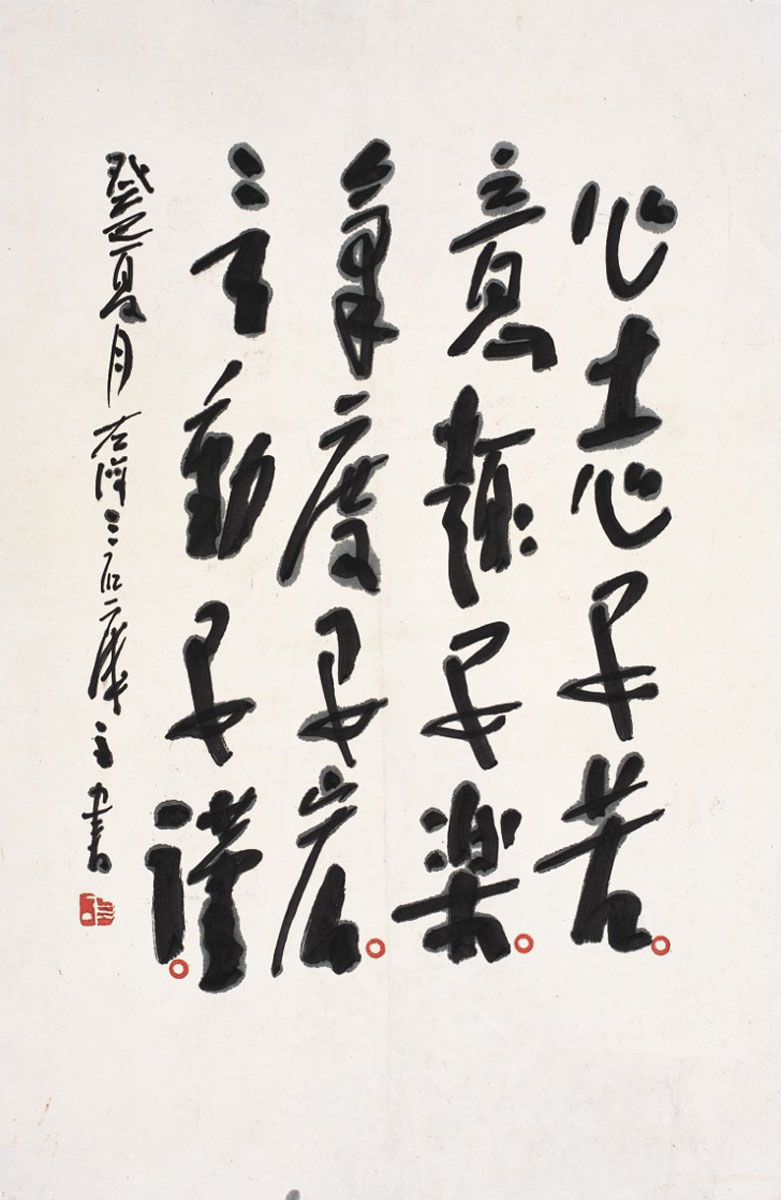 心志要苦
意趣要樂
氣度要宏
言動要謹
癸亥夏月 三石 主書